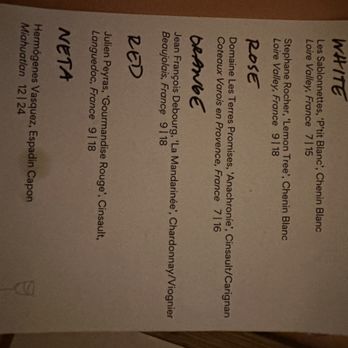 WHITE
Les Sablonnettes, 'P'tit Blanc', Chenin Blanc
Loire Valley, France 7|15
Stephane Rocher, 'Lemon Tree', Chenin Blanc
Loire Valley, France 9|18
ROSE
Domaine Les Terres Promises, 'Anachronie', Cinsault/Carignan
Coteaux Varois en Provence, France 7|16
ORANGE
Jean François Debourg, 'La Mandarinée', Chardonnay/Viognier
Beaujolais, France 9|18
RED
Julien Peyras, 'Gourmandise Rouge', Cinsault,
Languedoc, France 9|18
NETA
Hermógenes Vasquez, Espadin Capon
Miahuatlan 12|24